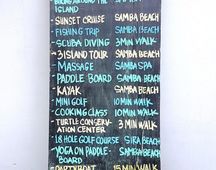 BIKING AROUND THE
ISLAND
- SUNSET CRUISE SAMBA BEACH
- FISHING TRIP SAMBA BEACH
- SCUBA DIVING 3MIN WALK
- 3 ISLAND TOUR SAMBA BEACH
- MASSAGE SAMBA SPA
- PADDLE BOARD SAMBA BEACH
- KAYAK SAMBA BEACH
- MINI GOLF 10 MIN WALK
- COOKING CLASS 10 MIN WALK
- TURTLE CONSERV-
ATION CENTER 3 MIN WALK
- 18 HOLE GOLF COURSE SIRA BEACH
- YOGA ON PADDLE-
BOARD SAMBA BEACH
15 MIN WALK